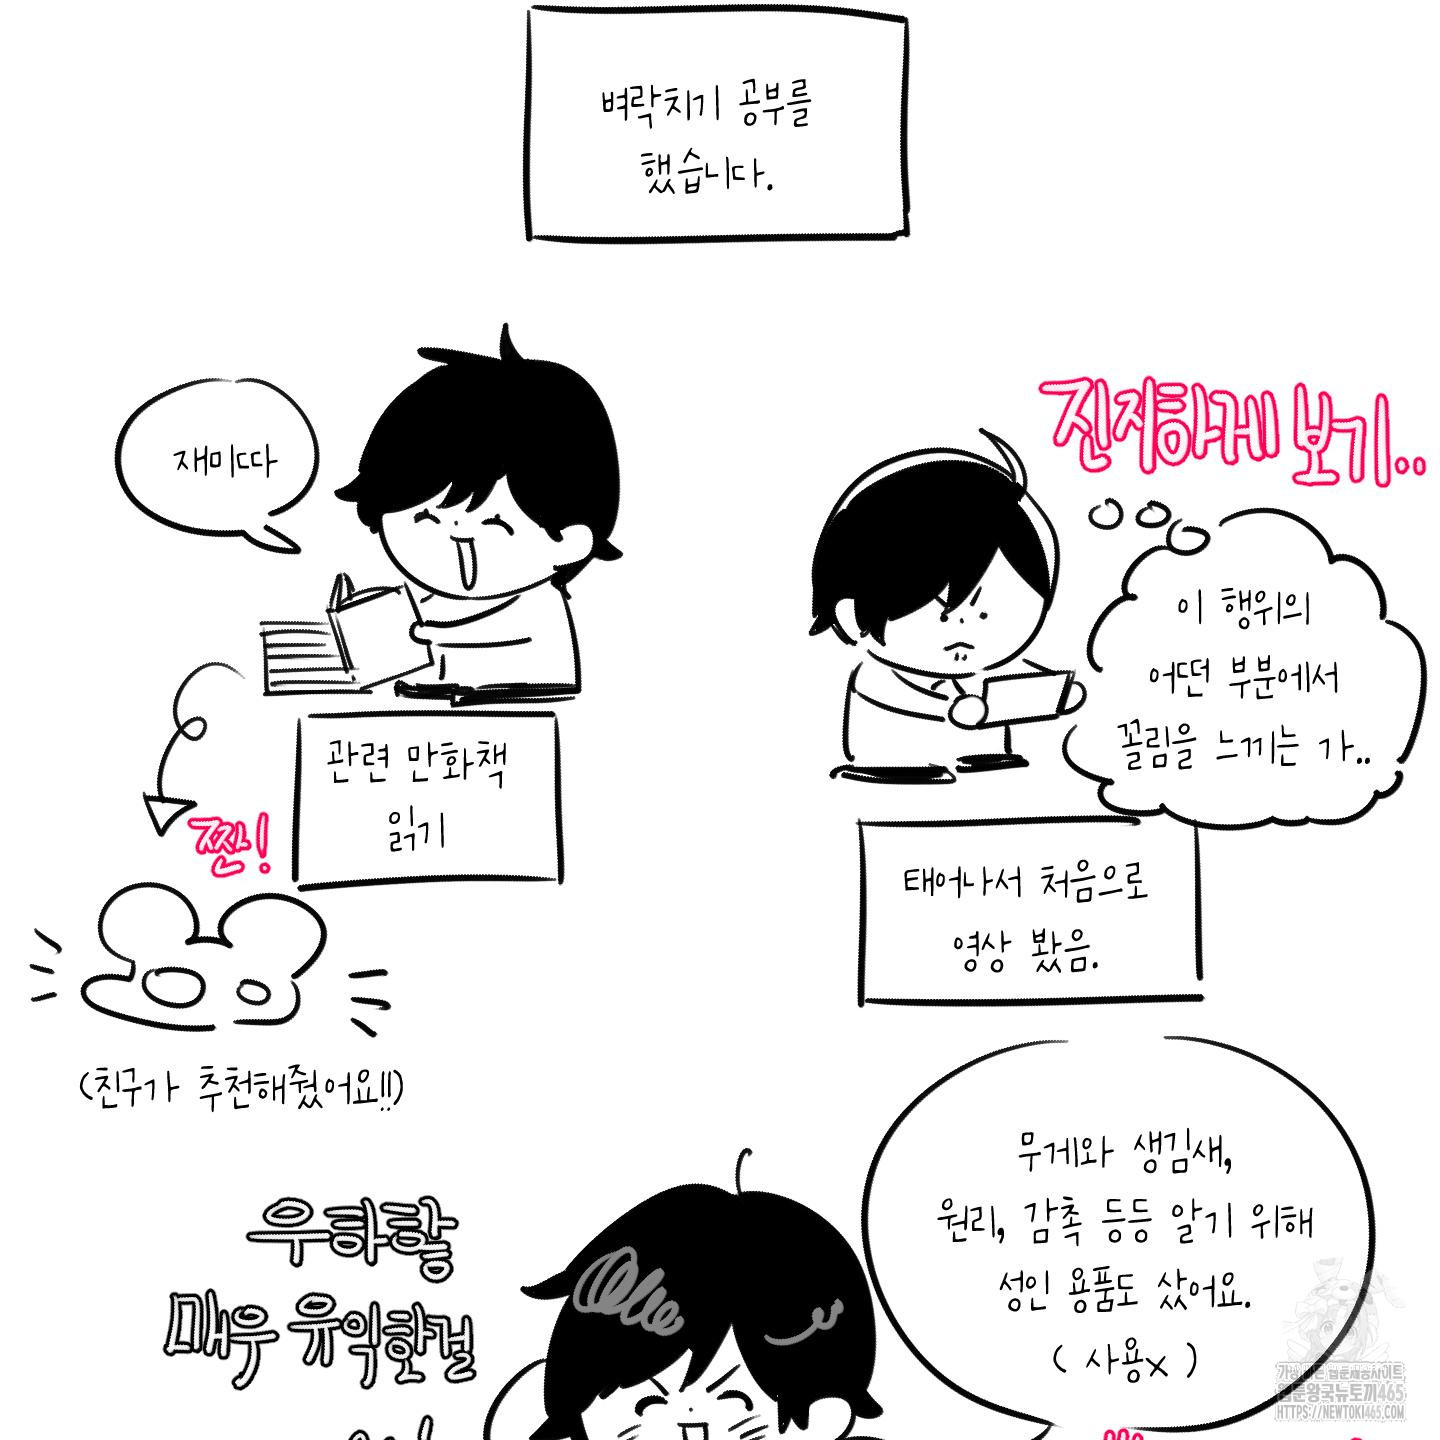 벼락치기 공부를
했습니다.
재미따
진지하게 보기..
이 행위의
어떤 부분에서
꼴림을 느끼는 가..
관련 만화책
읽기
짠!
태어나서 처음으로
영상 봤음.
(친구가 추천해줬어요!!)
무게와 생김새,
원리, 감촉 등등 알기 위해
성인 용품도 샀어요.
( 사용x )
우하핳
매우 유익한걸
HTTPS://NEWTOKI465.COM